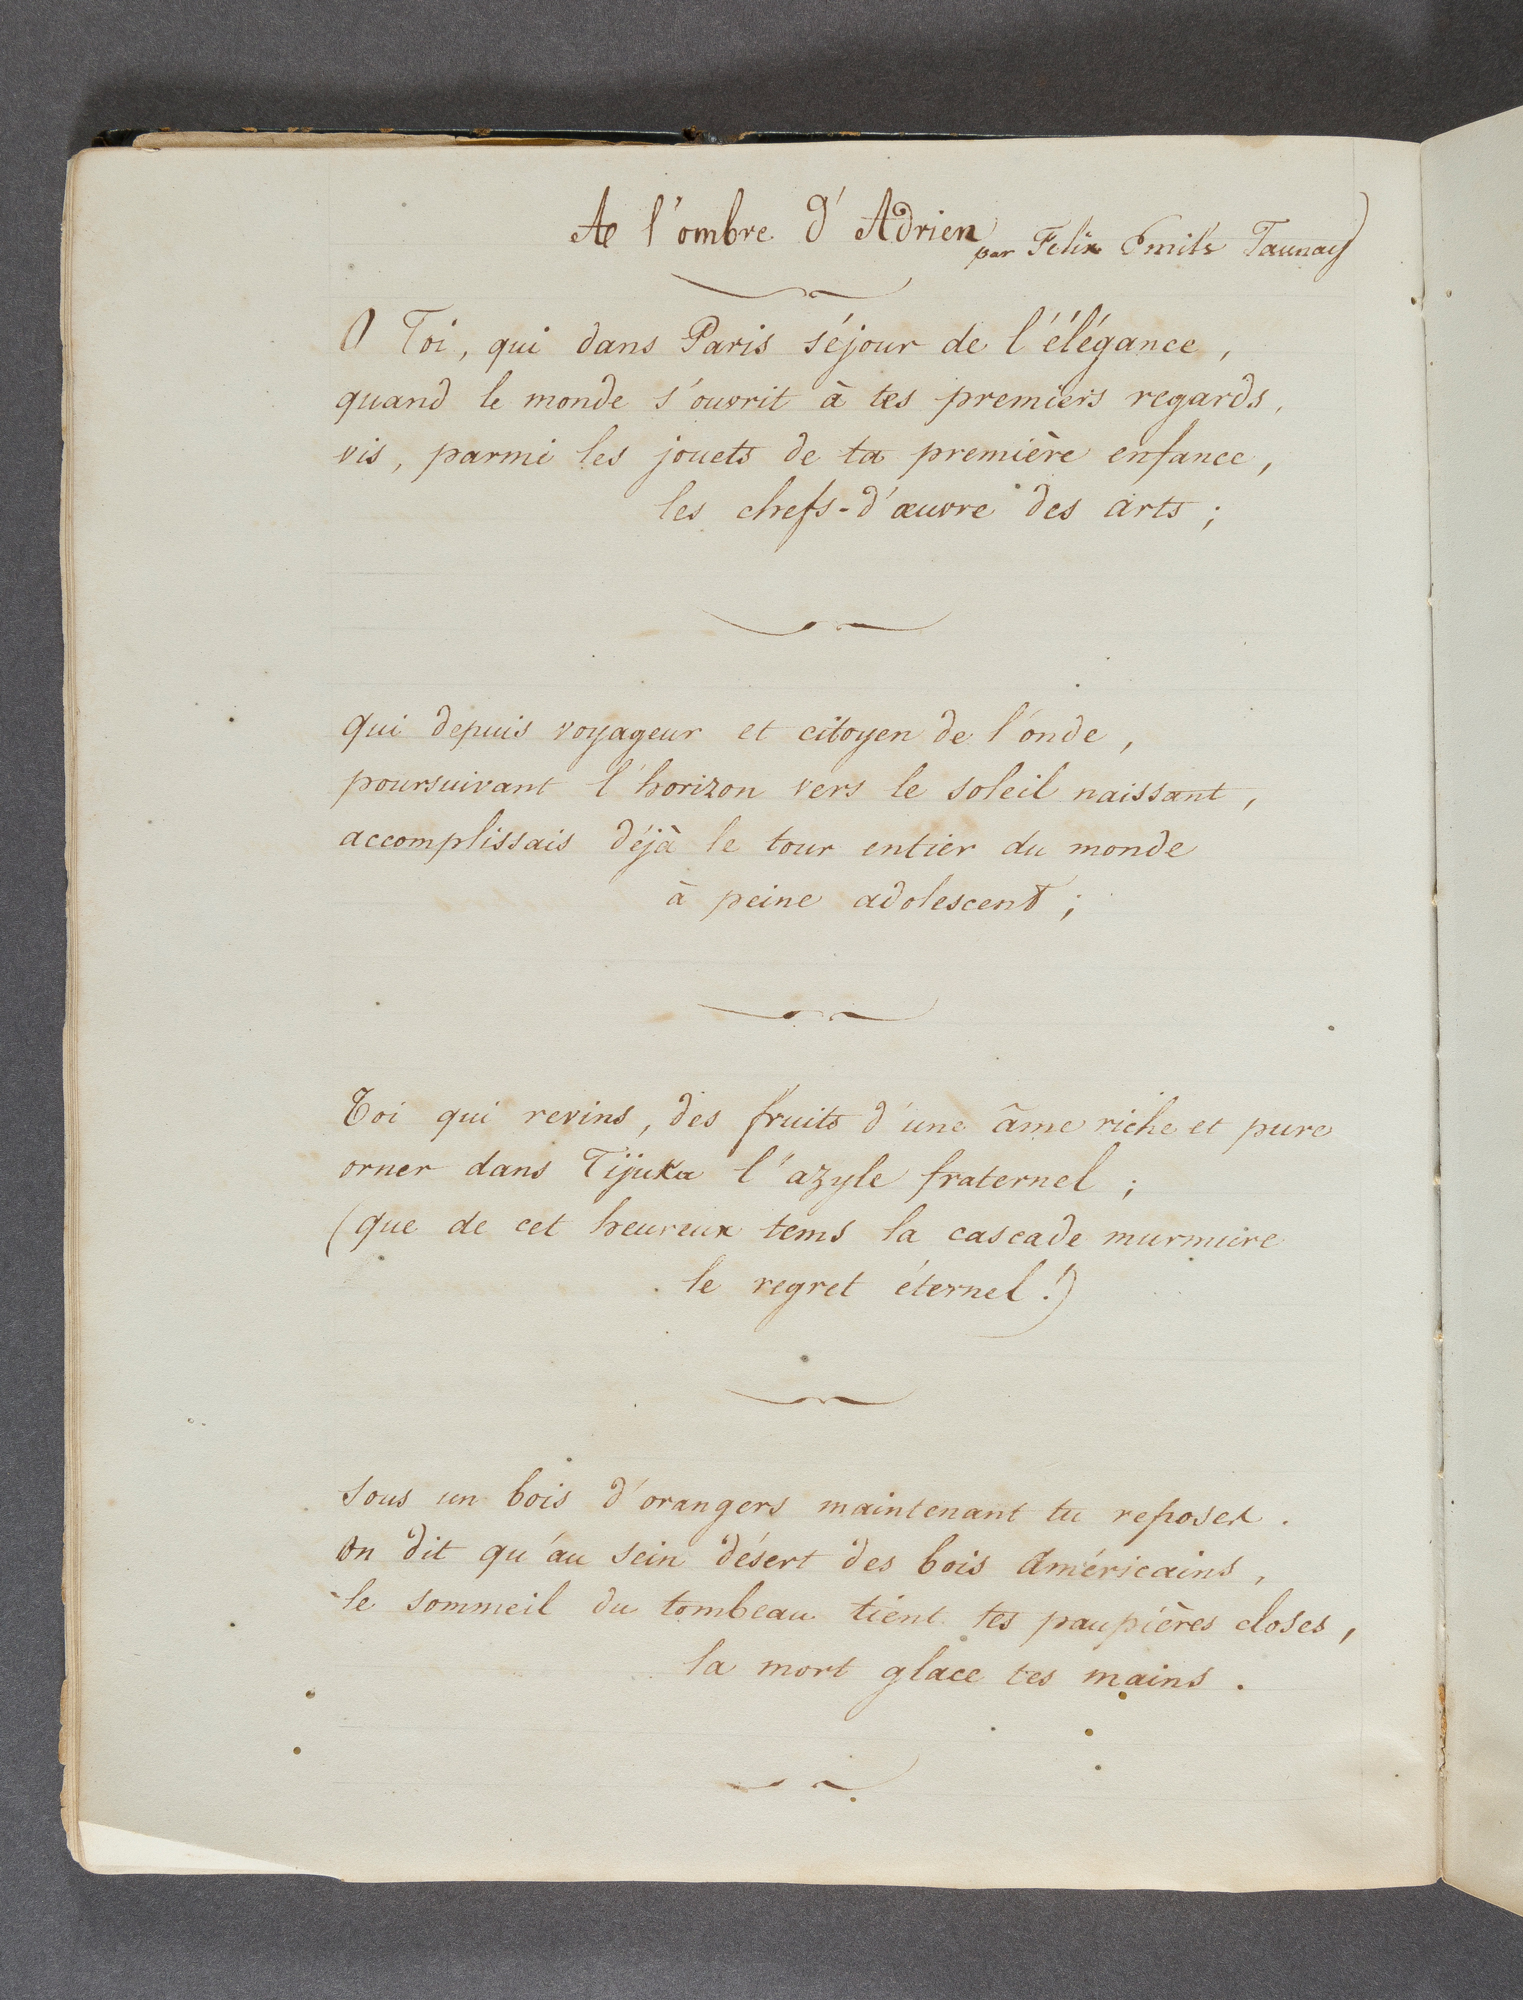 A l'ombre d'Adrien
par Felix Emile Taunay
O Toi, qui dans Paris séjour de l'élégance,
quand le monde s'ouvrit à tes premiers regards,
vis, parmi les jouets de ta première enfance,
les chefs-d'œuvre des arts ;
qui depuis voyageur et citoyen de l'onde,
poursuivant l'horizon vers le soleil naissant,
accomplissais déjà le tour entier du monde
à peine adolescent ;
Toi qui revins, des fruits d'une âme riche et pure
orner dans Tijuka l'azyle fraternel ;
(que de cet heureux tems la cascade murmure
le regret éternel !)
sous un bois d'orangers maintenant tu reposes.
On dit qu'au sein désert des bois Américains,
le sommeil du tombeau tient tes paupières closes,
la mort glace tes mains.